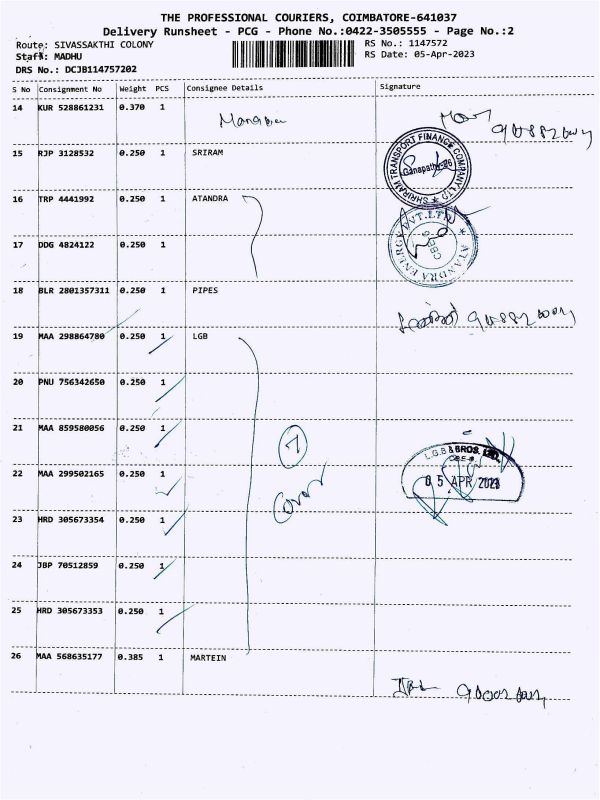 THE PROFESSIONAL COURIERS, COIMBATORE-641037
Delivery Runsheet - PCG - Phone No.:0422-3505555 - Page No.:2
Route: SIVASSAKTHI COLONY
RS No.: 1147572
Staff: MADHU
RS Date: 05-Apr-2023
DRS No.: DCJB114757202
S No Consignment No Weight PCS Consignee Details Signature
14 KUR 528861231 0.370 1
Manager
15 RJP 3128532 0.250 1 SRIRAM
SHRIRAM TRANSPORT FINANCE COMPANY LTD
Ganapathy
16 TRP 4441992 0.250 1 ATANDRA
ATANDRA ENERGY PVT.LTD
17 DDG 4824122 0.250 1
18 BLR 2801357311 0.250 1 PIPES
19 MAA 298864780 0.250 1 LGB
20 PNU 756342650 0.250 1
21 MAA 859580056 0.250 1
7
L.G.B & BROS. LTD.
22 MAA 299502165 0.250 1
Cover
05 APR 2023
23 HRD 305673354 0.250 1
24 JBP 70512859 0.250 1
25 HRD 305673353 0.250 1
26 MAA 568635177 0.385 1 MARTEIN